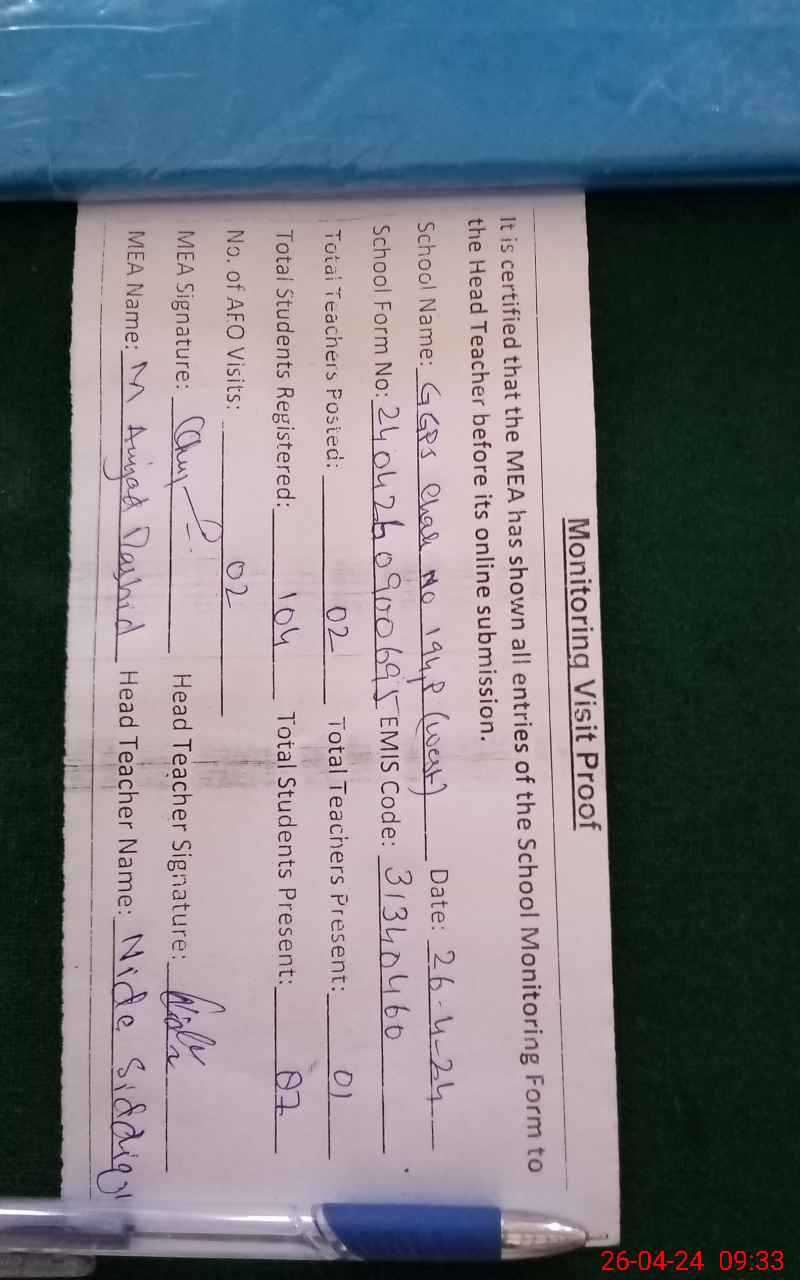 Monitoring Visit Proof
It is certified that the MEA has shown all entries of the School Monitoring Form to
the Head Teacher before its online submission.
School Name: GGPS Chak No 194,P (west) Date: 26-4-24
School Form No: 2404260900695 EMIS Code: 31340460
Total Teachers Posted: 02 Total Teachers Present: 01
Total Students Registered: 104 Total Students Present: 87
No. of AEO Visits: 02
MEA Signature: Head Teacher Signature:
MEA Name: M Amjad Rashid Head Teacher Name: Nida Siddiqui
26-04-24 09:33